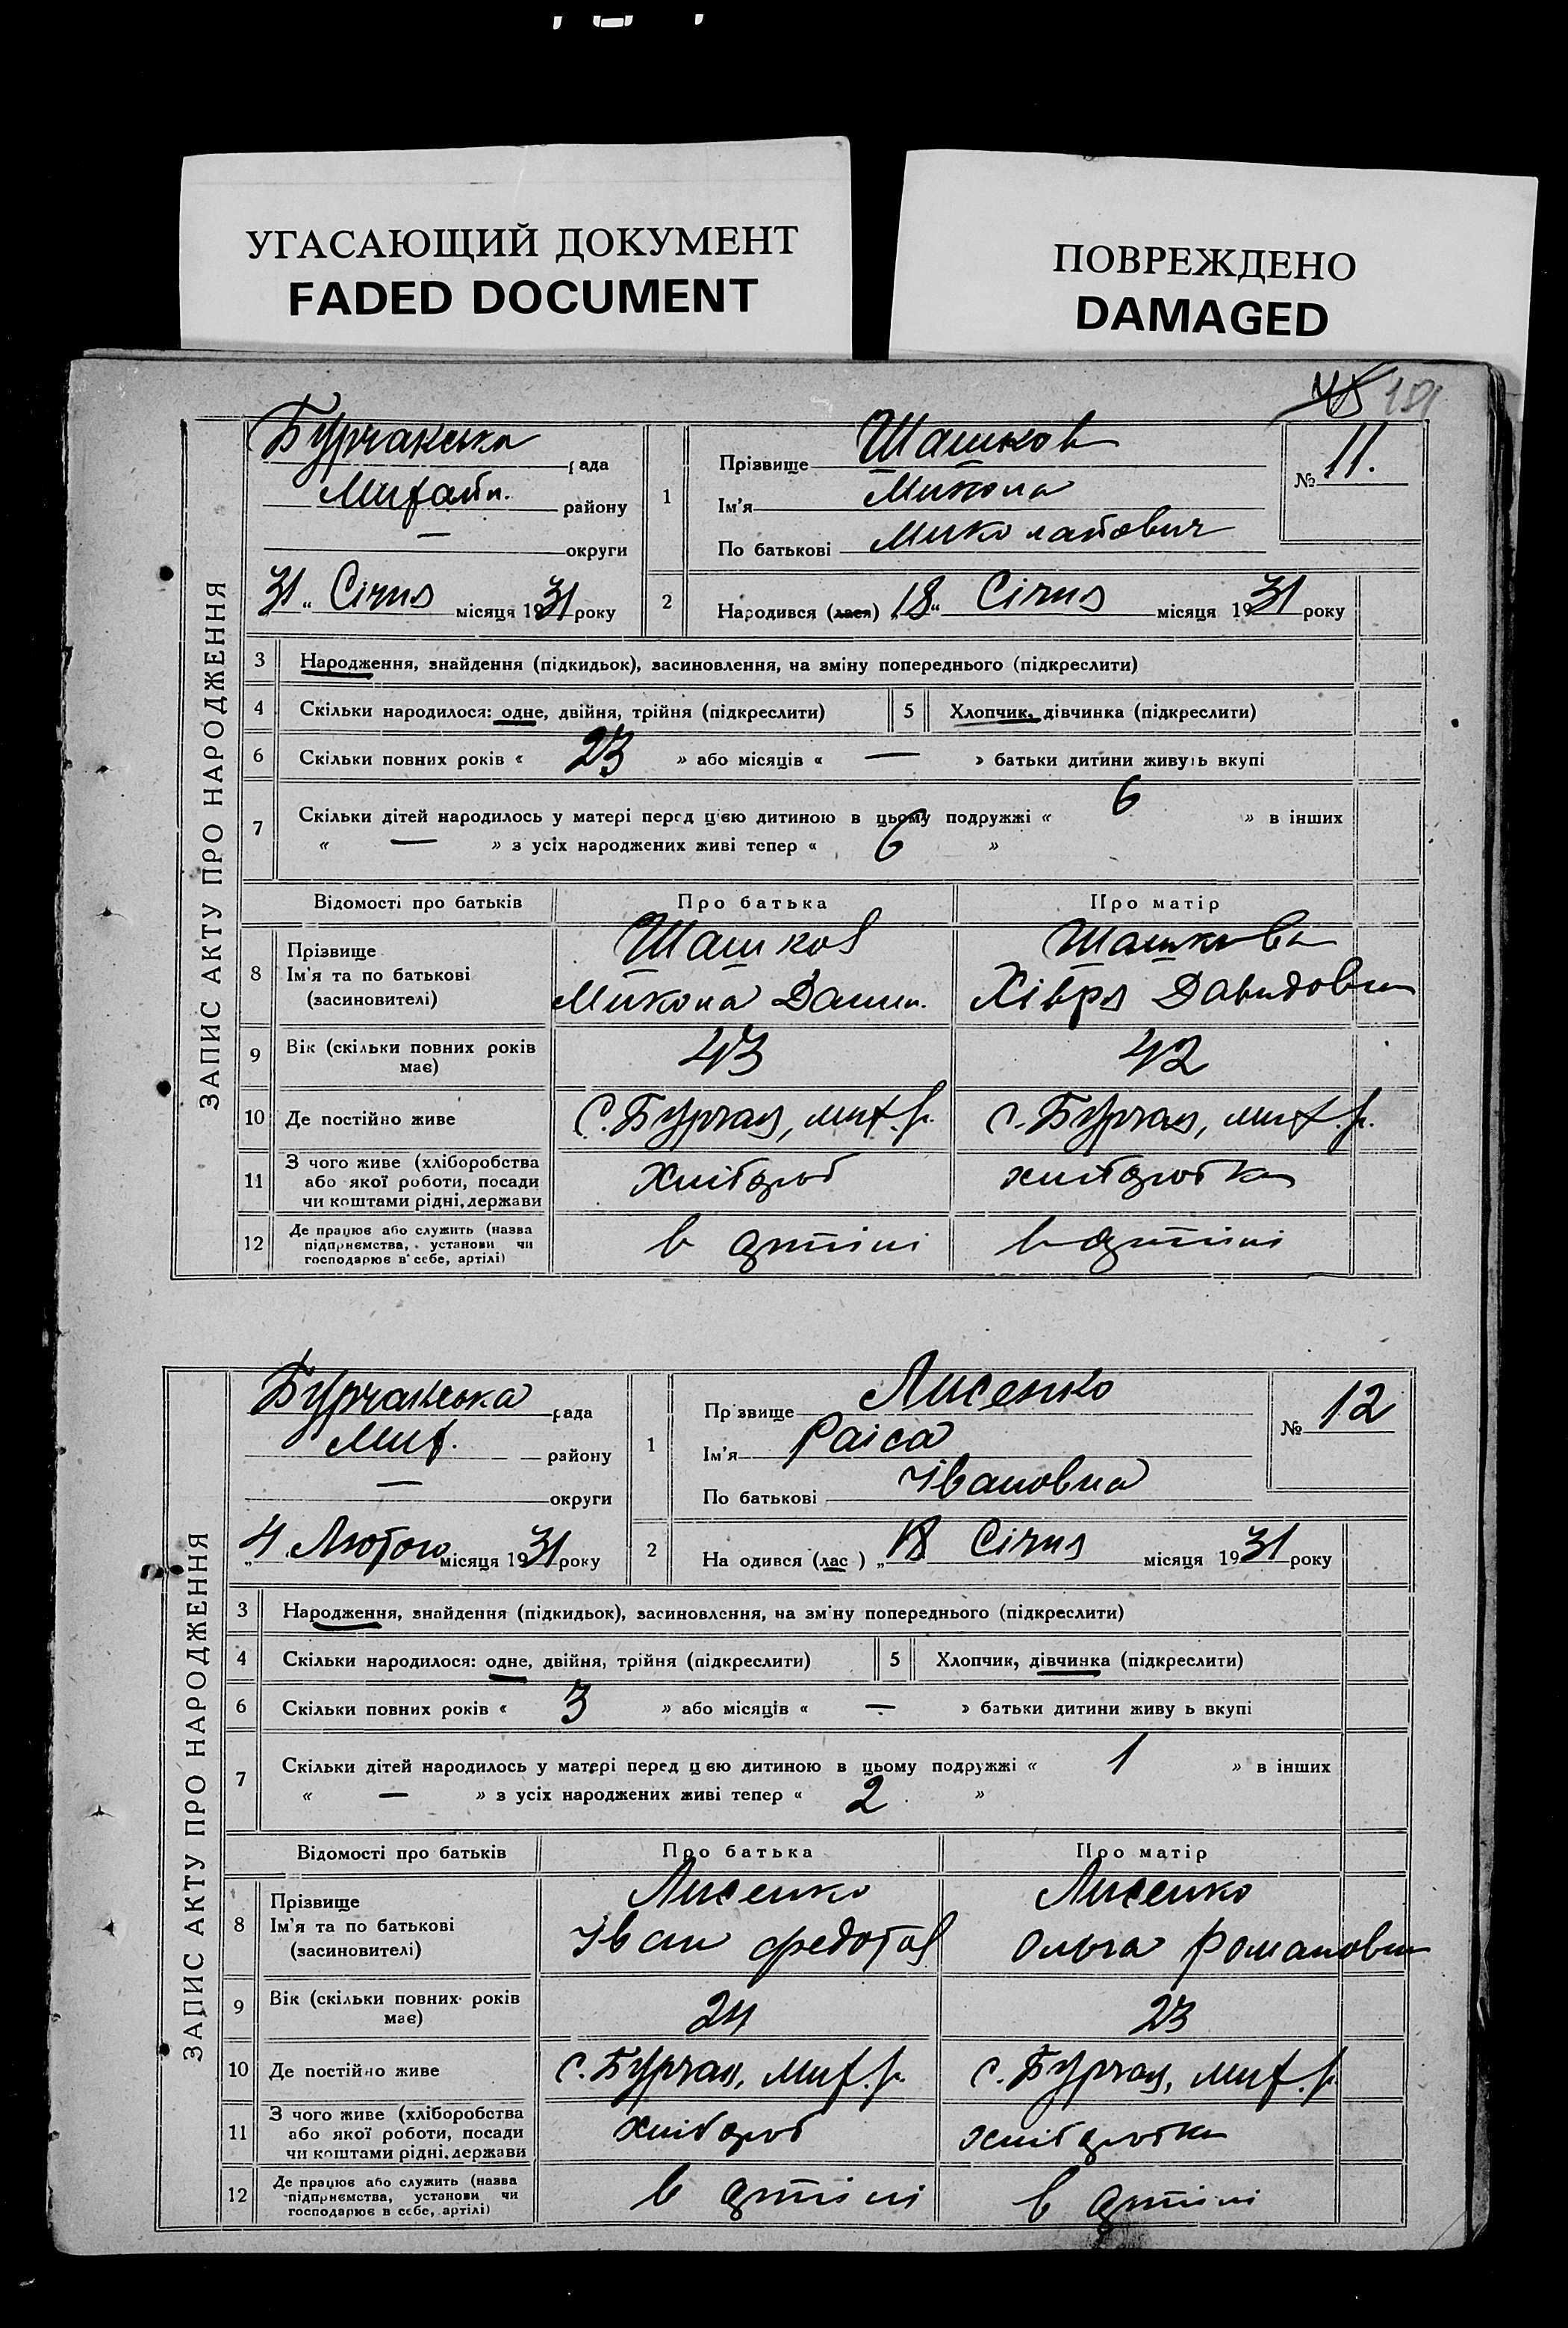 УГАСАЮЩИЙ ДОКУМЕНТ
FADED DOCUMENT
ПОВРЕЖДЕНО
DAMAGED
ЗАПИС АКТУ ПРО НАРОДЖЕННЯ
Бурчакська рада
Михайл. району
— округи
31 „ Січня місяця 1931 року
1
Прізвище Шашков
Ім'я Микола
По батькові Миколайович
№ 11.
2 Народився (лася) „18“ Січня місяця 1931 року
3 Народження, знайдення (підкидьок), засиновлення, на зміну попереднього (підкреслити)
4 Скільки народилося: одне, двійня, трійня (підкреслити) 5 Хлопчик, дівчинка (підкреслити)
6 Скільки повних років « 23 » або місяців « — » батьки дитини живуть вкупі
7 Скільки дітей народилось у матері перед цією дитиною в цьому подружжі « 6 » в інших
« — » з усіх народжених живі тепер « 6 »
Відомості про батьків Про батька Про матір
8 Прізвище Ім'я та по батькові (засиновителі)
Шашков Шашкова
Микола Данил. Хівря Давидовна
9 Вік (скільки повних років має) 43 42
10 Де постійно живе С. Бурчак, мих. р. с. Бурчак, мих. р.
11 З чого живе (хліборобства або якої роботи, посади чи коштами рідні, держави Хлібороб хліборобка
12 Де працює або служить (назва підприємства, установи чи господарює в себе, артілі) в артілі в артілі
ЗАПИС АКТУ ПРО НАРОДЖЕННЯ
Бурчакська рада
Мих. району
— округи
„4 Лютого місяця 1931 року
1
Пр звище Лисенко
Ім'я Раіса
По батькові Івановна
№ 12
2 На одився (лас ) „18 Січня місяця 1931 року
3 Народження, знайдення (підкидьок), засиновлення, на зм ну попереднього (підкреслити)
4 Скільки народилося: одне, двійня, трійня (підкреслити) 5 Хлопчик, дівчинка (підкреслити)
6 Скільки повних років « 3 » або місяців « — » батьки дитини живу ь вкупі
7 Скільки дітей народилось у матері перед ц ею дитиною в цьому подружжі « 1 » в інших
« — » з усіх народжених живі тепер « 2 »
Відомості про батьків Про батька Про матір
8 Прізвище Ім'я та по батькові (засиновителі)
Лисенко Лисенко
Іван Федотов Ольга Романовна
9 Вік (скільки повних років має) 24 23
10 Де постійно живе с. Бурчак, Мих. р. с. Бурчак, мих. р.
11 З чого живе (хліборобства або якої роботи, посади чи коштами рідні, держави Хлібороб хліборобка
12 Де працює або служить (назва підприємства, установи чи господарює в себе, артілі) в артілі в артілі